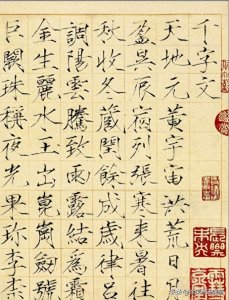 千字文
天地元黄宇宙洪荒日月
盈昃辰宿列張寒來暑往
秋收冬藏閏餘成歲律呂
調陽雲騰致雨露結為霜
金生麗水玉出崑崗劒號
巨闕珠稱夜光果珍李柰